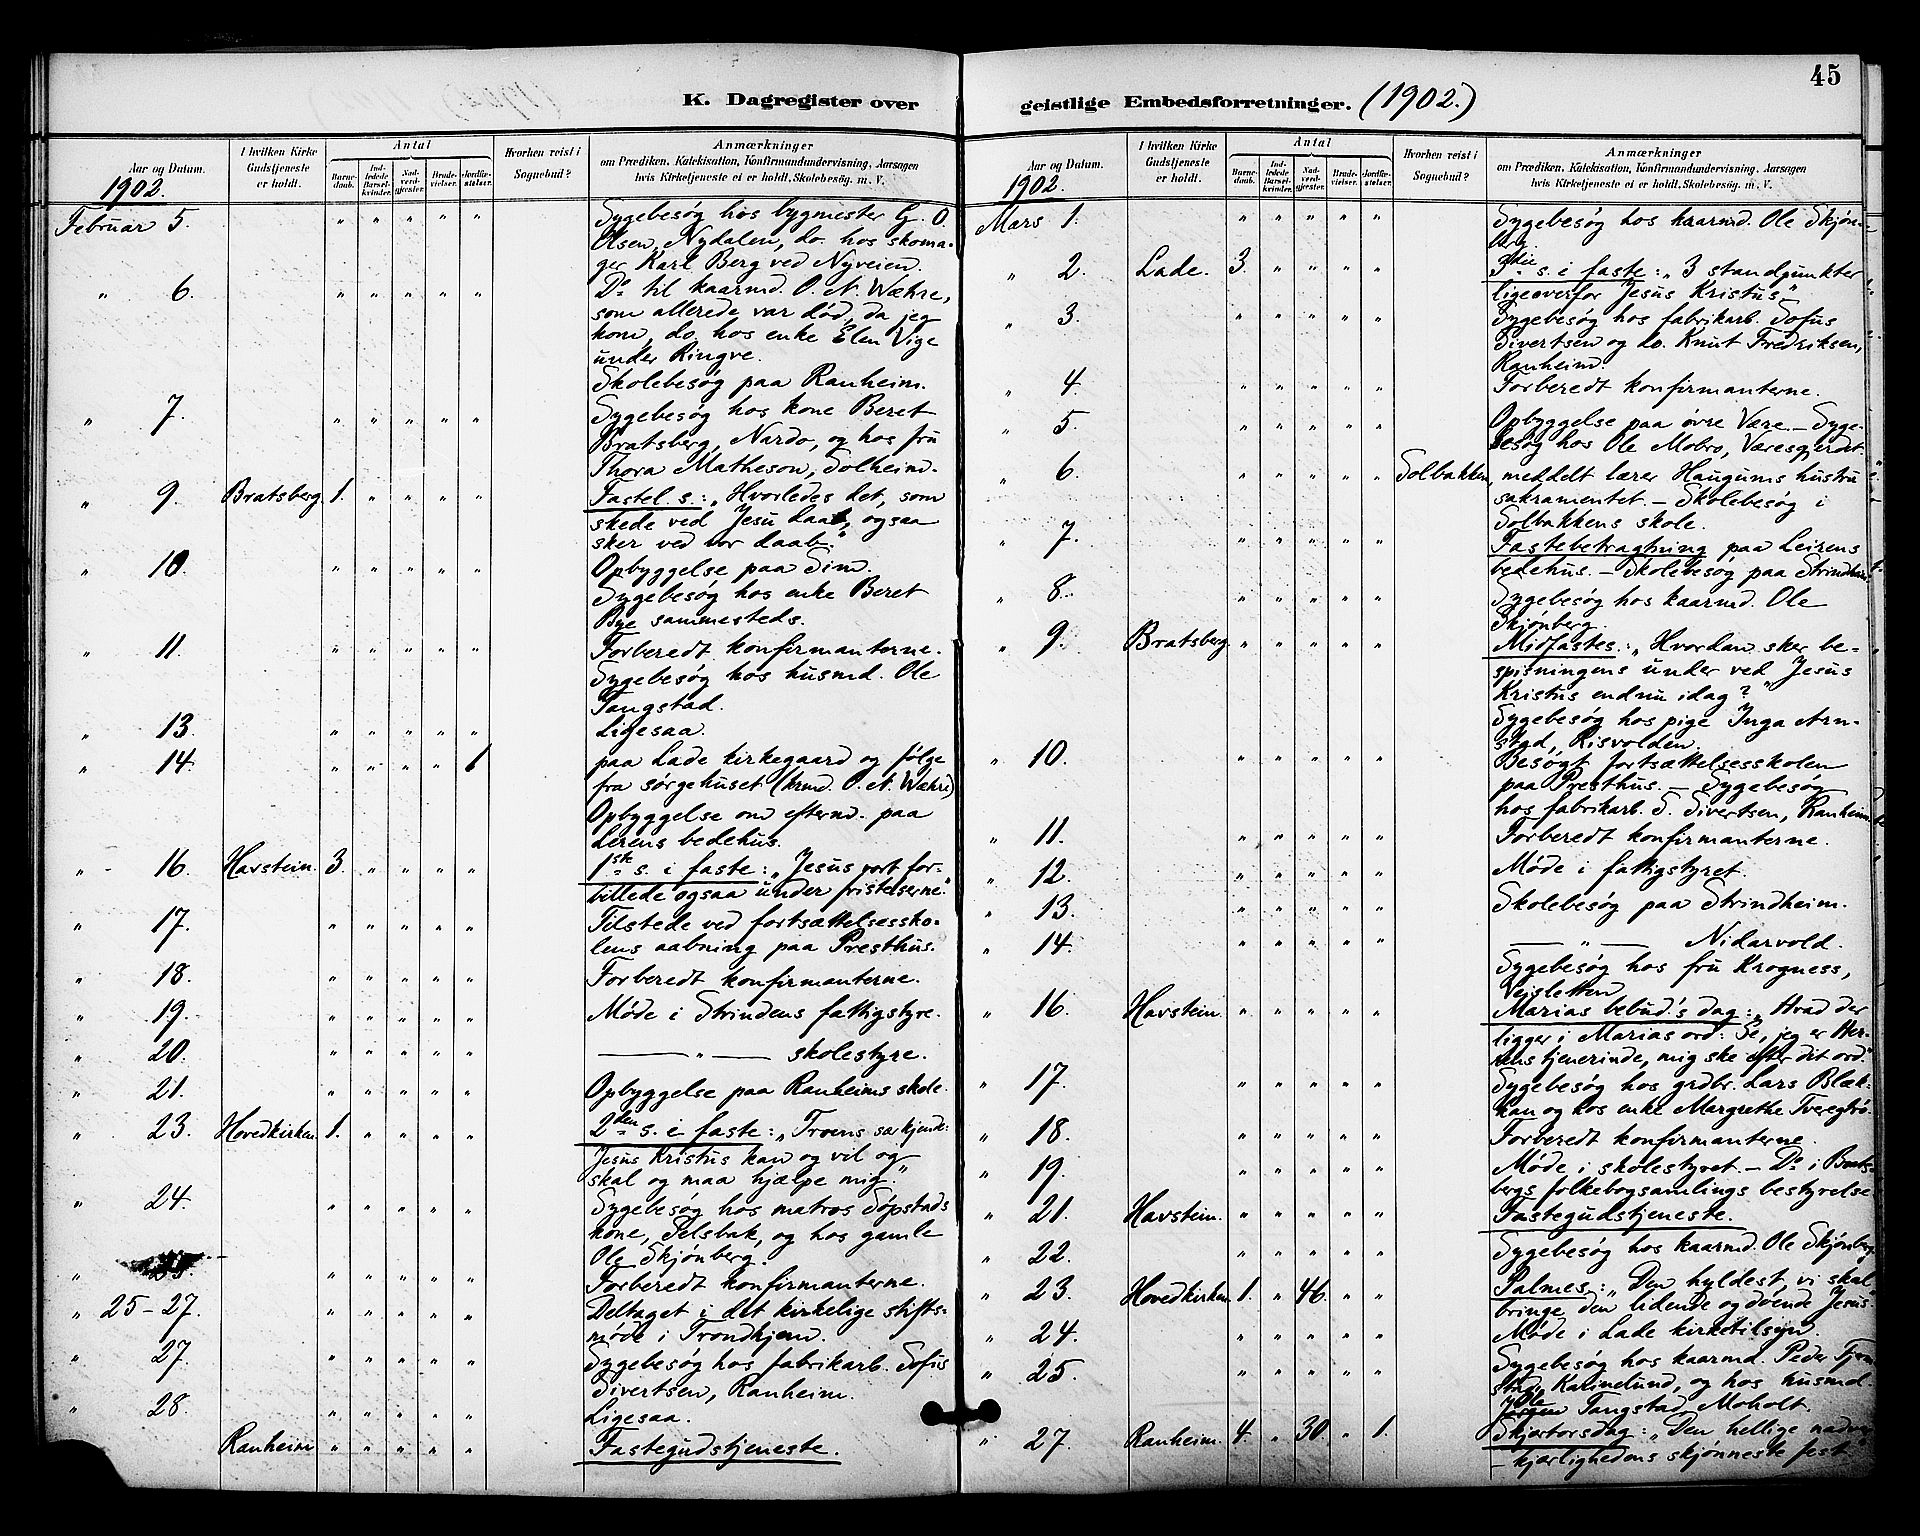 45
K. Dagregister over geistlige Embedsforretninger. (1902.)
Aar og Datum.
1902.
I hvilken Kirke Gudstjeneste er holdt.
Antal
Barnedaab.
Indledede Barselkvinder.
Nadverdgjester.
Brudevielser.
Jordfæstelser.
Hvorhen reist i Sognebud?
Anmærkninger
om Prædiken, Katekisation, Konfirmandundervisning, Aarsagen
hvis Kirketjeneste ei er holdt, Skolebesøg. m. V.
Februar 5. " " " " " Sygebesøg hos bygmester G. O.
Olsen, Nydalen, do. hos skoma-
ger Karl Berg ved Nyveien.
" 6. " " " " " Do til kaarmd. O. A. Wæhre,
som allerede var død, da jeg
kom, do. hos enke Elen Vige
under Ringve.
Skolebesøg paa Ranheim.
" 7. " " " " " Sygebesøg hos kone Beret
Bratsberg, Nardo, og hos fru
Thora Matheson, Solheim.
" 9. Bratsberg 1. " " " " Fastel. s.: "Hvorledes det, som
skede ved Jesu daab, ogsaa
sker ved vor daab."
" 10. " " " " " Opbyggelse paa Sim.
Sygebesøg hos enke Beret
Bye sammesteds.
" 11. " " " " " Forberedt konfirmanterne.
Sygebesøg hos husmd. Ole
Tangstad.
" 13. " " " " " Ligesaa.
" 14. " " " " 1 paa Lade kirkegaard og følge
fra sørgehuset (krmd. O. A. Wæhre)
Opbyggelse om efternd. paa
Lerens bedehus.
" 16. Havstein. 3. " " " " 1ste s. i faste: "Jesus vort for-
billede ogsaa under fristelserne."
" 17. " " " " " Tilstede ved fortsættelsessko-
lens aabning paa Presthus.
" 18. " " " " " Forberedt konfirmanterne.
" 19. " " " " " Møde i Strindens fattigstyre.
" 20. " " " " " — " — skolestyre.
" 21. " " " " " Opbyggelse paa Ranheims skole.
" 23. Hovedkirken. 1. " " " " 2den s. i faste: "Troens særkjende:
Jesus Kristus kan og vil og
skal og maa hjælpe mig."
" 24. " " " " " Sygebesøg hos matros Søpstads
kone, Selsbak, og hos gamle
Ole Skjønberg.
" " " " " " Forberedt konfirmanterne.
" 25-27. " " " " " Deltaget i det kirkelige stifts-
møde i Trondhjem.
" 27. " " " " " Sygebesøg hos fabrikarb. Sofus
Sivertsen, Ranheim.
" 28. " " " " " Ligesaa.
Ranheim " " " " " Fastegudstjeneste.
Aar og Datum.
1902.
I hvilken Kirke Gudstjeneste er holdt.
Antal
Barnedaab.
Indledede Barselkvinder.
Nadverdgjester.
Brudevielser.
Jordfæstelser.
Hvorhen reist i Sognebud?
Anmærkninger
om Prædiken, Katekisation, Konfirmandundervisning, Aarsagen
hvis Kirketjeneste ei er holdt, Skolebesøg. m. V.
Mars 1. " " " " " Sygebesøg hos kaarmd. Ole Skjøn-
berg.
" 2. Lade. 3. " " " " 3die s. i faste: "3 standpunkter
ligeoverfor Jesus Kristus"
" 3. " " " " " Sygebesøg hos fabrikarb. Sofus
Sivertsen og do. Knut Fredriksen,
Ranheim.
" 4. " " " " " Forberedt konfirmanterne.
" 5. " " " " " Opbyggelse paa øvre Være. – Syge-
besøg hos Ole Mobro, Væresgjerdet.
" 6. " " " " " Solbakken, meddelt lærer Haugums hustru
sakramentet – Skolebesøg i
Solbakkens skole.
" 7. " " " " " Fastebetragtning paa Leirens
bedehus. – Skolebesøg paa Strindheim.
" 8. " " " " " Sygebesøg hos kaarmd. Ole
Skjønberg.
" 9. Bratsberg. " " " " " Midfastes.: "Hvordan sker be-
spisningens under ved Jesus
Kristus endnu idag?"
Sygebesøg hos pige Inga Arn-
stad, Risvolden.
" 10. " " " " " Besøgt fortsættelsesskolen
paa Presthus. – Sygebesøg
hos fabrikarb. S. Sivertsen, Ranheim.
" 11. " " " " " Forberedt konfirmanterne.
" 12. " " " " " Møde i fattigstyret.
" 13. " " " " " Skolebesøg paa Strindheim.
" 14. " " " " " — " — Nidarvold.
Sygebesøg hos fru Krogness,
Vejsletten
" 16. Havstein. " " " " " Marias bebud.'s dag: "Hvad der
ligger i Marias ord: Se, jeg er Her-
rens tjenerinde, mig ske efter dit ord."
" 17. " " " " " Sygebesøg hos grdbr. Lars Blæk-
kan og hos enke Margrethe Tveregtrø.
" 18. " " " " " Forberedt konfirmanterne.
" 19. " " " " " Møde i skolestyret. – Do i Brats-
bergs folkebogsamlings bestyrelse
" 21. Havstein. " " " " " Fastegudstjeneste.
" 22. " " " " " Sygebesøg hos kaarmd. Ole Skjønberg
" 23. Hovedkirken 1. " 46. " " Palmes.: "Den hyldest, vi skal
bringe den lidende og døende Jesus."
" 24. " " " " " Møde i Lade kirketilsyn.
" 25. " " " " " Sygebesøg hos kaarmd. Peder
Karinelund, og hos husmd.
Ole Tangstad, Moholt.
" 27. Ranheim. 4. " 30. " 1. Skjærtorsdag: "Den hellige nadver
– kjærlighedens skjønneste fest"